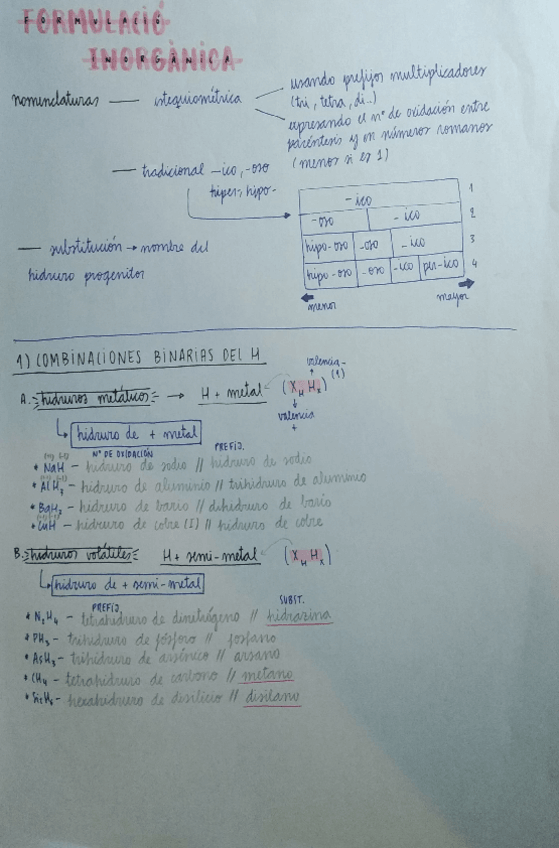 FORMULACIÓ
FORMULACIÓ
INORGÀNICA
INORGÀNICA
nomenclaturas — estequiométrica
usando prefijos multiplicadores
(tri, tetra, di..)
expresando el nº de oxidación entre
paréntesis y en números romanos
(menor si es 1)
— tradicional -ico, -oso
hiper-, hipo-
-ico 1
-oso -ico 2
hipo-oso -oso -ico 3
hipo-oso -oso -ico per-ico 4
menor mayor
— substitución → nombre del
hidruro progenitor
1) COMBINACIONES BINARIAS DEL H
A. hidruros metálicos → H + metal (XH Hx)
valencia -
(1)
valencia
+
hidruro de + metal
Nº DE OXIDACIÓN PREFIJ.
• NaH - hidruro de sodio // hidruro de sodio
• AlH3 - hidruro de aluminio // trihidruro de aluminio
• BaH2 - hidruro de bario // dihidruro de bario
• CuH - hidruro de cobre (I) // hidruro de cobre
B. hidruros volátiles H + semi-metal (XH Hx)
hidruro de + semi-metal
PREFIJ. SUBST.
• N2H4 - tetrahidruro de dinitrógeno // hidrazina
• PH3 - trihidruro de fósforo // fosfano
• AsH3 - trihidruro de arsénico // arsano
• CH4 - tetrahidruro de carbono // metano
• Si2H6 - hexahidruro de disilicio // disilano